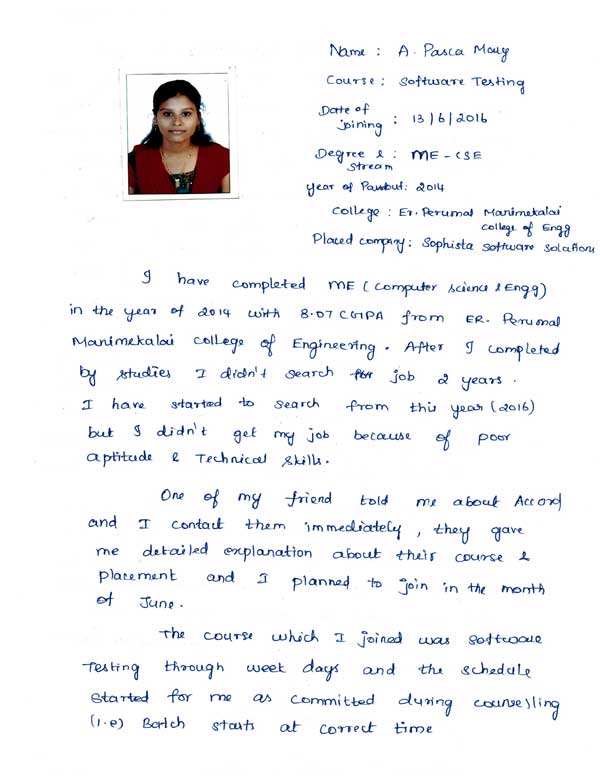 Name : A. Pasca Mary
Course : Software Testing
Date of
joining : 13/6/2016
Degree & : ME - CSE
stream
Year of Passout : 2014
College : Er. Perumal Manimekalai
College of Engg
Placed company : Sophista Software Solations
I have completed ME ( Computer Science & Engg)
in the year of 2014 with 8.07 CGPA from ER. Perumal
Manimekalai College of Engineering . After I completed
by studies I didn't search for job 2 years .
I have started to search from this year (2016)
but I didn't get my job because of poor
aptitude & Technical Skills .
One of my friend told me about Accord
and I contact them immediately , they gave
me detailed explanation about their course &
placement and I planned to join in the month
of June .
The course which I joined was software
Testing through week days and the schedule
started for me as committed during counselling
(i.e) Batch starts at correct time